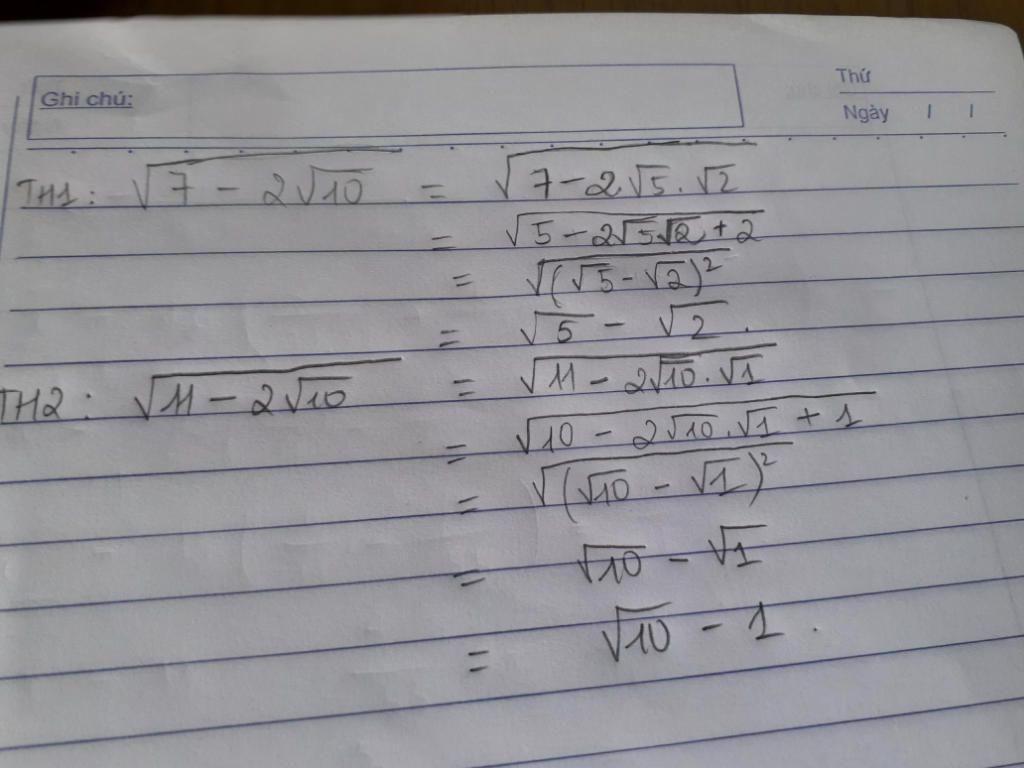 Thứ
Ghi chú:
Ngày / /
TH1: √(7 - 2√10) = √(7 - 2√5.√2)
= √(5 - 2√5√2 + 2)
= √((√5 - √2)²)
= √5 - √2.
TH2: √(11 - 2√10) = √(11 - 2√10.√1)
= √(10 - 2√10.√1 + 1)
= √((√10 - √1)²)
= √10 - √1
= √10 - 1.